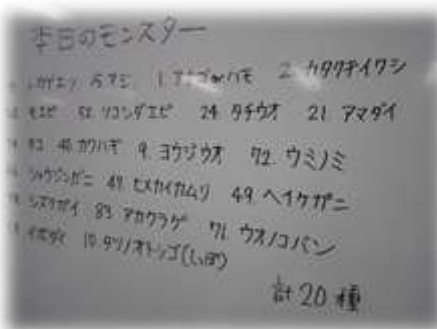 本日のモンスター
アミ 1. アナゴorハモ 2. カタクチイワシ
エビ 52. ソコシラエビ 24. タチウオ 21. アマダイ
タコ 40. カワハギ 9. ヨウジウオ 72. ウミノミ
ショウジンガニ 47. ヒメカイカムリ 49. ヘイケガニ
シズクガイ 83. アカクラゲ 71. ウオノコバン
イボダイ 10. タツノオトシゴ(しっぽ)
計20種